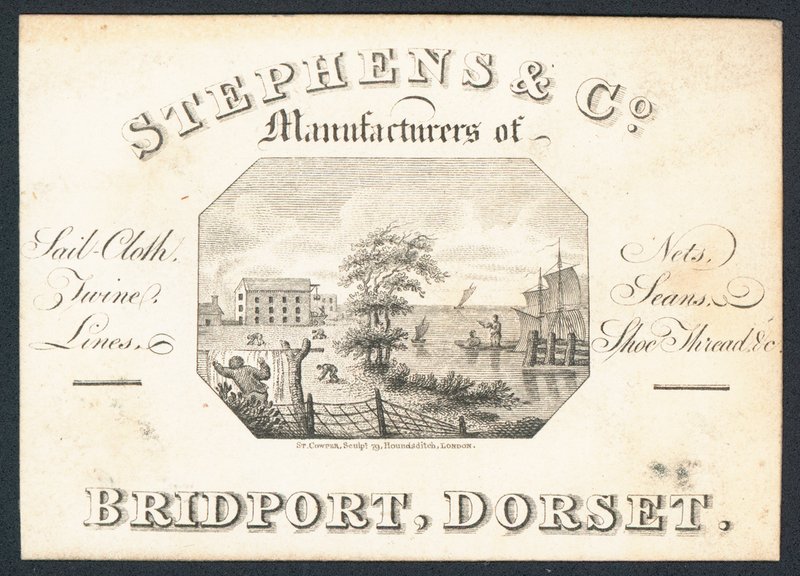 STEPHENS & Co.
Manufacturers of
Sail-Cloth,
Twine,
Lines,
Nets,
Seans,
Shoe Thread, &c.
St. Cowper, Sculpt. 79, Houndsditch, London.
BRIDPORT, DORSET.